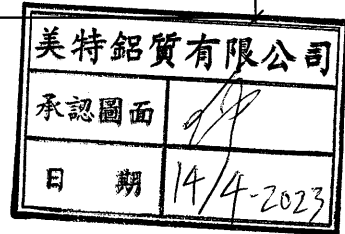 美特鋁質有限公司
承認圖面
日期 14/4-2023